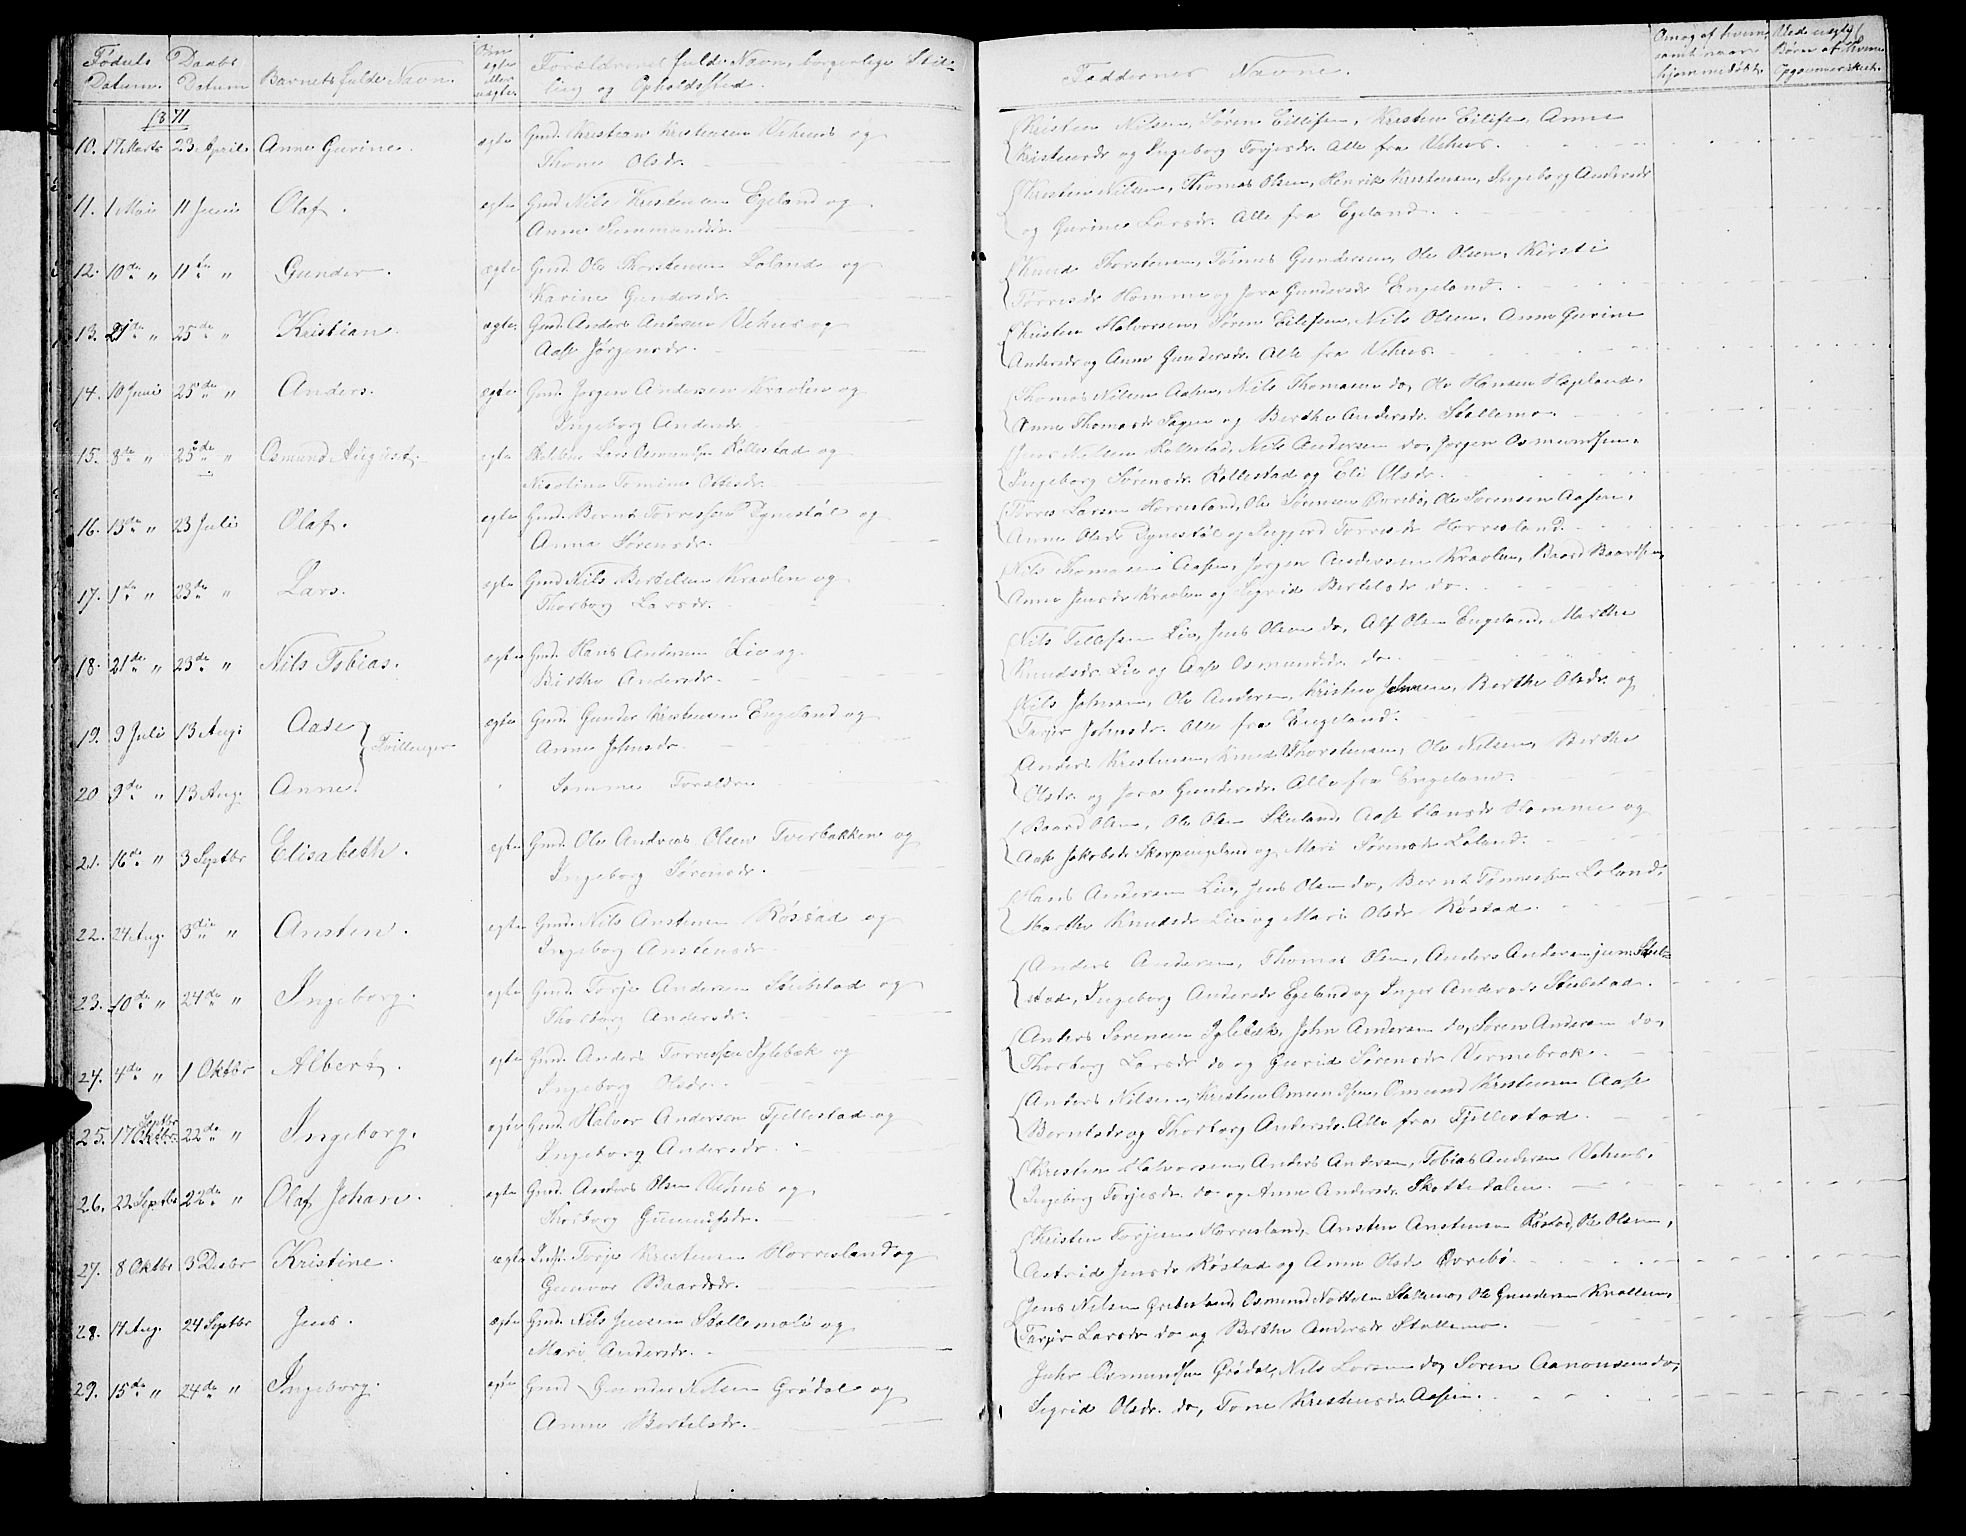 Fødsels Daabs Barnets fulde Navn. Om egte eller uegte Forældrenes fulde Navn, borgerlige Stil-
Datum. Datum ling og Opholdssted.
1871
10. 17 Marts 23 April Anne Gurine. egte Gmd. Kristian Kristensen Vehus og
Thone Olsdr.
11. 1 Mai 11 Juni Olaf. egte Gmd Nils Kristensen Egeland og
Anne
12. 10de " 11te " Gunder. egte Gmd. Ole Thorstensen Loland og
Karine Gundersdr.
13. 21de " 25de " Kristian. egte Gmd. Anders Andersen Vehus og
Aase Jørgensdr.
14. 10 Juni 25de " Anders. egte Gmd. Jørgen Andersen Kraølen og
Ingeborg Andersdr.
15. 8de " 25de " Osmund August. egte Lars Osmundsen Rollestad og
Nicoline Tomine
16. 13de " 23 Juli Olaf. egte Gmd. Bernt Torressen Dynestøl og
Anna Sørensdr.
17. 1de " 23de " Lars. egte Gmd Nils Bertelsen Kraølen og
Thorborg Larsdr.
18. 21de " 23de " Nils Tobias. egte Gmd. Hans Andersen Lie og
Birthe Andersdr.
19. 9 Juli 13 Aug. Aase Tvillinger egte Gmd. Gunder Kristensen Engeland og
Anne Johnsdr.
20 9de " 13 Aug. Anne. Samme Forældre
21. 16de " 3 Septbr Elisabeth. egte Gmd. Ole Andreas Olsen Tverbakken og
Ingeborg Sørensdr.
22. 24 Aug. 3die " Ansten. egte Gmd. Nils Anstensen Røstad og
Ingeborg Anstensdr
23. 10de " 24de " Ingeborg. egte Gmd. Torje Andersen Stubstad og
Thorborg Andersdr.
24. 4de " 1 Oktbr Albert. egte Gmd. Anders Torressen Iglebæk og
Ingeborg Olsdr.
25. 17 Septbr Oktbr. 22de " Ingeborg. egte Gmd. Halvor Andersen Fjellestad og
Ingeborg Andersdr.
26. 22 Septbr 22de " Olaf Johan. egte Gmd. Anders Olsen Vehus og
Thorborg Gunnufsdr.
27. 8 Oktbr 3 Desbr Kristine. egte Torje Kristensen Horresland og
Gunvor Baardsdr.
28. 14 Aug. 24 Septbr Jens. egte Gmd. Nils Jensen Stallemo og
Mari Andersdr.
29. 15de " 24de " Ingeborg. egte Gmd Gunder Nilsen Grødal og
Anne Bertelsdr.
Faddernes Navne.
Om og af hvem samt naar hjemmedøbt.
Ved uegte Børn af hvem
Kristen Nilsen, Søren Eilifsen, Kristen Eilifsen, Anne
Kristensdr og Ingeborg Torjesdr. Alle fra Vehus.
Kristen Nilsen, Thomas Olsen, Henrik Kristensen, Ingeborg Andersdr
og Gurine Larsdr. Alle fra Egeland.
Knud Thorstensen, Tønnes Gundersen, Ole Olsen, Kirsti
Torresdr Homme og Jora Gundersdr Engeland.
Kristen Halvorsen, Søren Eilifsen, Nils Olsen, Anne Gurine
Andersdr og Anne Gundersdr. Alle fra Vehus.
Thomas Nilsen Aasen, Nils Thomasen do, Ole Hansen Hægeland,
Anne Thomasdr Sagen og Berthe Andersdr. Stallemo.
Jens Nilsen Rollestad, Nils Andersen do, Jørgen Osmundsen,
Ingeborg Sørensdr Rollestad og Eli Olsdr.
Torres Larsen Horresland, Ole Sørensen Øvrebø, Ole Sørensen Aasen,
Anne Olsdr Dynestøl og Torresdr Horresland.
Nils Thomasen Aasen, Jørgen Andersen Kraølen, Baard Baardsen,
Anne Jensdr Kraølen og Sigrid Bertelsdr do.
Nils Tellefsen Lie, Jens Olsen do, Alf Olsen Engeland, Marthe
Knudsdr. Lie og Aase Osmundsdr. do.
Nils Johnsen, Ole Andersen, Kristen Johnsen, Berthe Olsdr. og
Tarjer Johnsdr. Alle fra Engeland.
Anders Kristensen, Knud Thorstensen, Ole Nilsen, Berthe
Olsdr. og Jora Gundersdr. Alle fra Engeland.
Baard Olsen, Ole Olsen Skuland, Aase Hansdr Homme og
Aase Jakobsdr Skarpengeland og Mari Sørensdr Loland.
Hans Andersen Lie, Jens Olsen do, Bernt Tønnessen Loland,
Marthe Knudsdr Lie og Mari Olsdr Røstad.
Anders Andersen, Thomas Olsen, Anders Andersen jun. Stub-
stad, Ingeborg Andersdr Egeland og Inger Andersdr Stubstad.
Anders Sørensen Iglebæk, John Andersen do, Søren Andersen do,
Thorborg Larsdr do og Gurid Sørensdr Vermebrok.
Anders Nilsen, Kristen Omundsen, Osmund Kristensen Aase
Berntsdr og Thorborg Andersdr. Alle fra Fjellestad.
Kristen Halvorsen, Anders Andersen, Tobias Andersen Vehus,
Ingeborg Torjesdr. do og Anne Andersdr Skottedalen.
Kristen Torjesen Horresland, Ansten Anstensen Røstad, Ole Olsen,
Astrid Jensdr Røstad og Anne Olsdr Øvrebø.
Jens Nilsen Osmund Stallemo, Ole Gundersen Knallen,
Tarjer Larsdr do og Berthe Andersdr Stallemo.
Osmundsen Grødal, Nils Larsen do, Søren Aanonsen do,
Sigrid Olsdr. do, Tone Kristensdr Aasen.